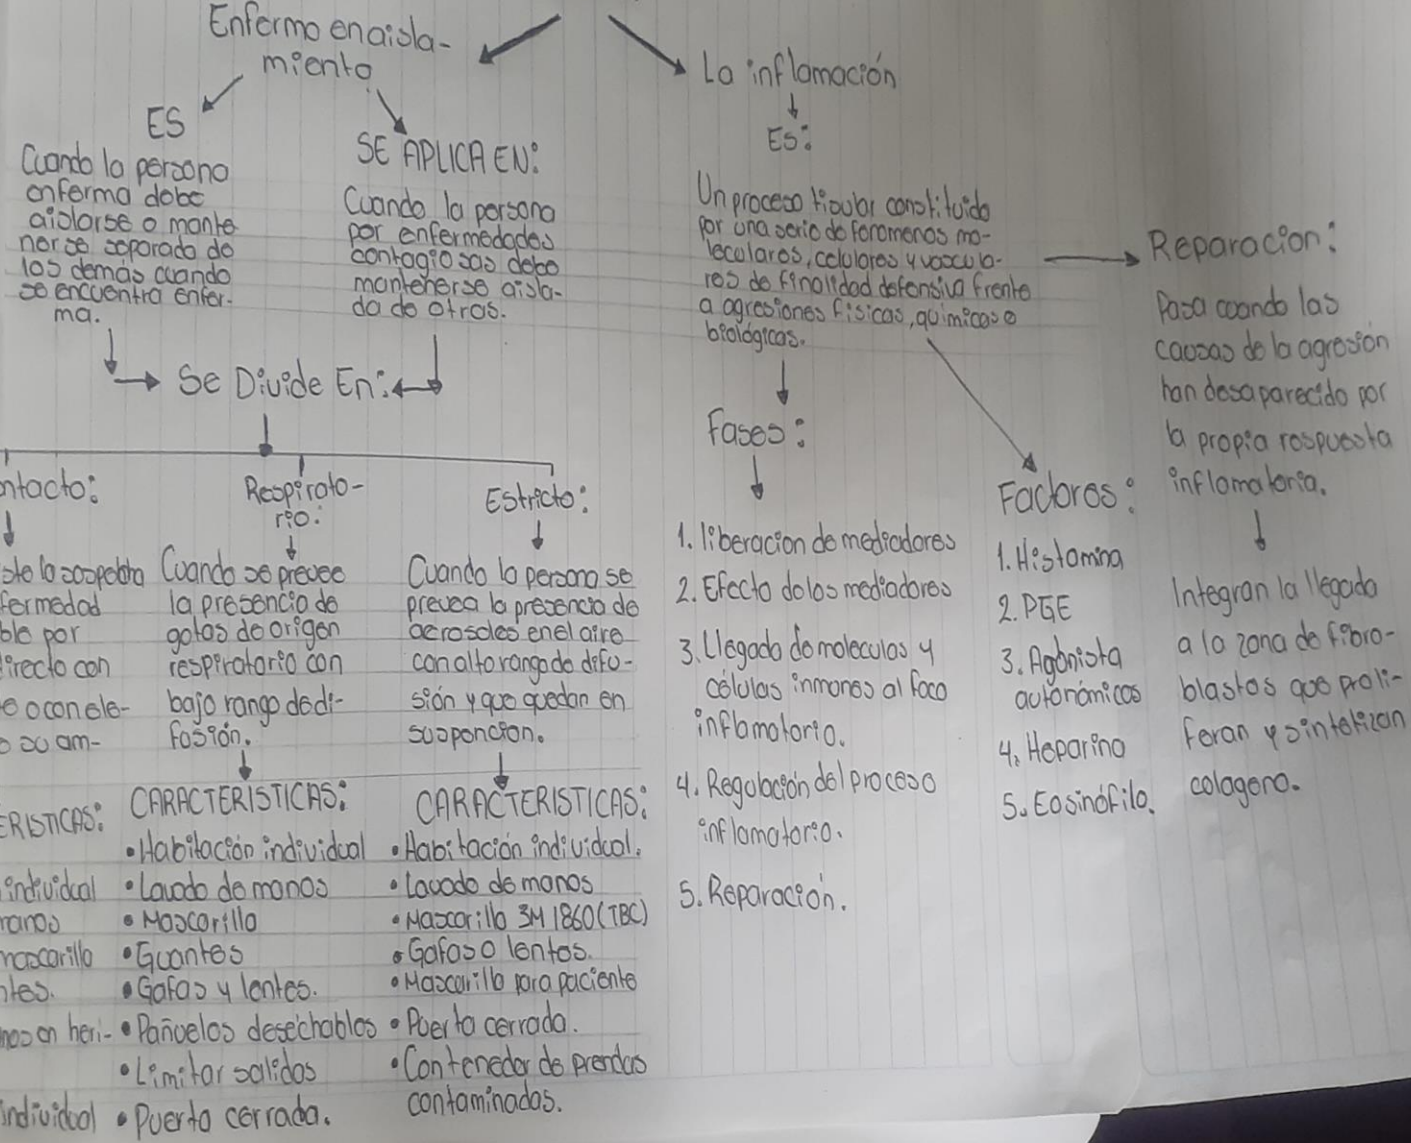 Enfermo en aisla-
miento
ES
Cuando la persona
enferma debe
aislarse o mante
nerse separado de
los demás cuando
se encuentra enfer-
ma.
SE APLICA EN:
Cuando la persona
por enfermedades
contagiosas debe
mantenerse aisla-
da de otros.
Se Divide En:
ntacto:
fermedad
ble por
directo con
o con ele-
o su am-
ERISTICAS:
individual
manos
mascarilla
ntes.
nos en heri-
individual
Respirato-
rio:
Cuando se prevee
la presencia de
gotas de origen
respiratorio con
bajo rango de di-
fusión.
CARACTERISTICAS:
• Habitación individual
• Lavado de manos
• Mascarilla
• Guantes
• Gafas y lentes.
• Pañuelos desechables
• Limitar salidas
• Puerta cerrada.
Estricto:
Cuando la persona se
prevea la presencia de
aerosoles en el aire
con alto rango de difu-
sión y que quedan en
suspencion.
CARACTERISTICAS:
• Habitación individual.
• Lavado de manos
• Mascarilla 3M 1860 (TBC)
• Gafas o lentes.
• Mascarilla para paciente
• Puerta cerrada.
• Contenedor de prendas
contaminadas.
La inflamación
Es:
Un proceso tisular constituido
por una serie de fenomenos mo-
leculares, celulares y vascula-
res de finalidad defensiva frente
a agresiones físicas, químicas o
biológicas.
Fases:
1. liberacion de mediadores
2. Efecto de los mediadores
3. Llegada de moleculas y
células inmunes al foco
inflamatorio.
4. Regulación del proceso
inflamatorio.
5. Reparación.
Factores:
1. Histamina
2. PGE
3. Agonista
autonómicos
4. Heparina
5. Eosinófilo.
Reparacion:
Pasa cuando las
causas de la agresión
han desaparecido por
la propia respuesta
inflamatoria.
Integran la llegada
a la zona de fibro-
blastos que proli-
feran y sintetizan
colageno.